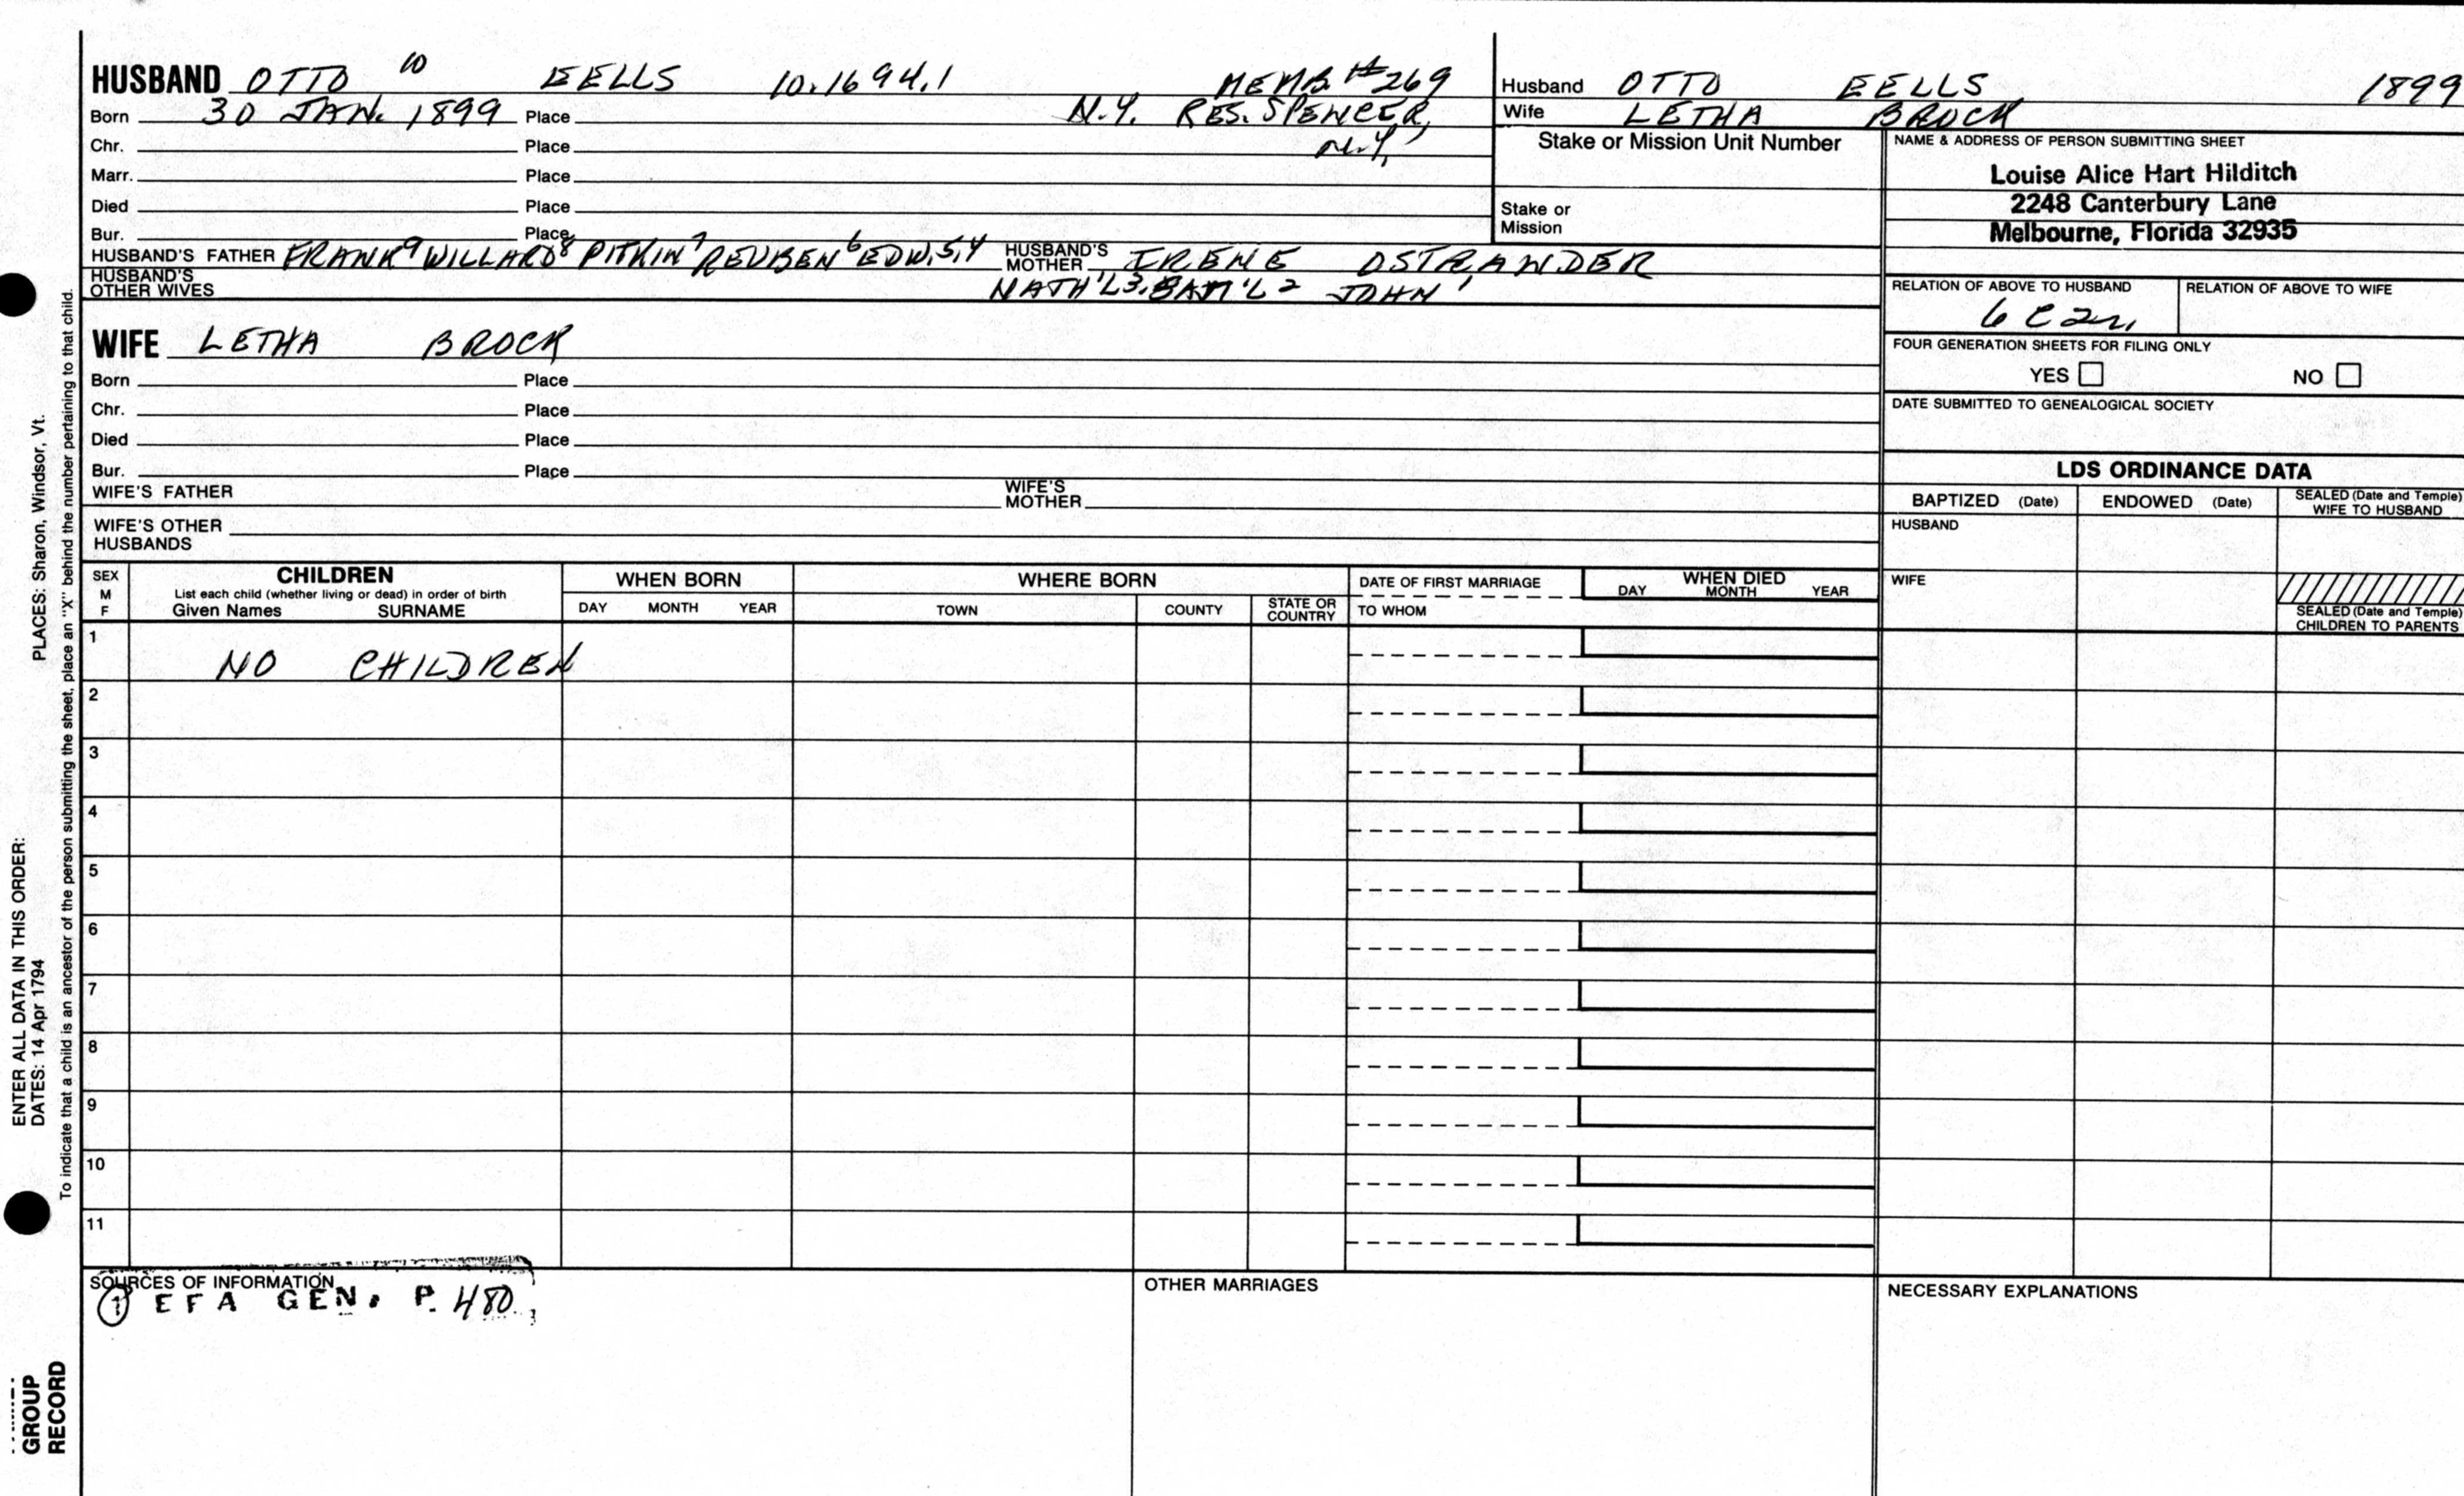 HUSBAND OTTO 10 EELLS 10.1694.1 MEMB.#269
Born 30 JAN. 1899 Place N.Y. RES. SPENCER,
Chr. Place N.Y,
Marr. Place
Died Place
Bur. Place
HUSBAND'S FATHER FRANK9 WILLARD8 PITKIN7 REUBEN6 EDW.5,4 HUSBAND'S MOTHER IRENE OSTRANDER
HUSBAND'S OTHER WIVES NATH'L3, SAM'L2 JOHN1
Husband OTTO EELLS 1899
Wife LETHA BROCK
Stake or Mission Unit Number
Stake or Mission
NAME & ADDRESS OF PERSON SUBMITTING SHEET
Louise Alice Hart Hilditch
2248 Canterbury Lane
Melbourne, Florida 32935
RELATION OF ABOVE TO HUSBAND RELATION OF ABOVE TO WIFE
6 C 2r,
FOUR GENERATION SHEETS FOR FILING ONLY
YES NO
DATE SUBMITTED TO GENEALOGICAL SOCIETY
WIFE LETHA BROCK
Born Place
Chr. Place
Died Place
Bur. Place
WIFE'S FATHER WIFE'S MOTHER
WIFE'S OTHER HUSBANDS
LDS ORDINANCE DATA
BAPTIZED (Date) ENDOWED (Date) SEALED (Date and Temple) WIFE TO HUSBAND
HUSBAND
WIFE
SEALED (Date and Temple)
CHILDREN TO PARENTS
SEX M F
CHILDREN
List each child (whether living or dead) in order of birth
Given Names SURNAME
WHEN BORN
DAY MONTH YEAR
WHERE BORN
TOWN COUNTY STATE OR COUNTRY
DATE OF FIRST MARRIAGE
TO WHOM
WHEN DIED
DAY MONTH YEAR
1 NO CHILDREN
2
3
4
5
6
7
8
9
10
11
SOURCES OF INFORMATION
1 EFA GEN. P. 480
OTHER MARRIAGES
NECESSARY EXPLANATIONS
ENTER ALL DATA IN THIS ORDER:
DATES: 14 Apr 1794 PLACES: Sharon, Windsor, Vt.
To indicate that a child is an ancestor of the person submitting the sheet, place an "X" behind the number pertaining to that child.
GROUP
RECORD